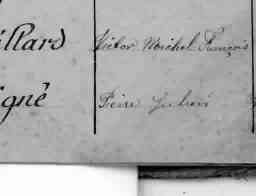 illard Victor Michel François
igné Pierre Julien